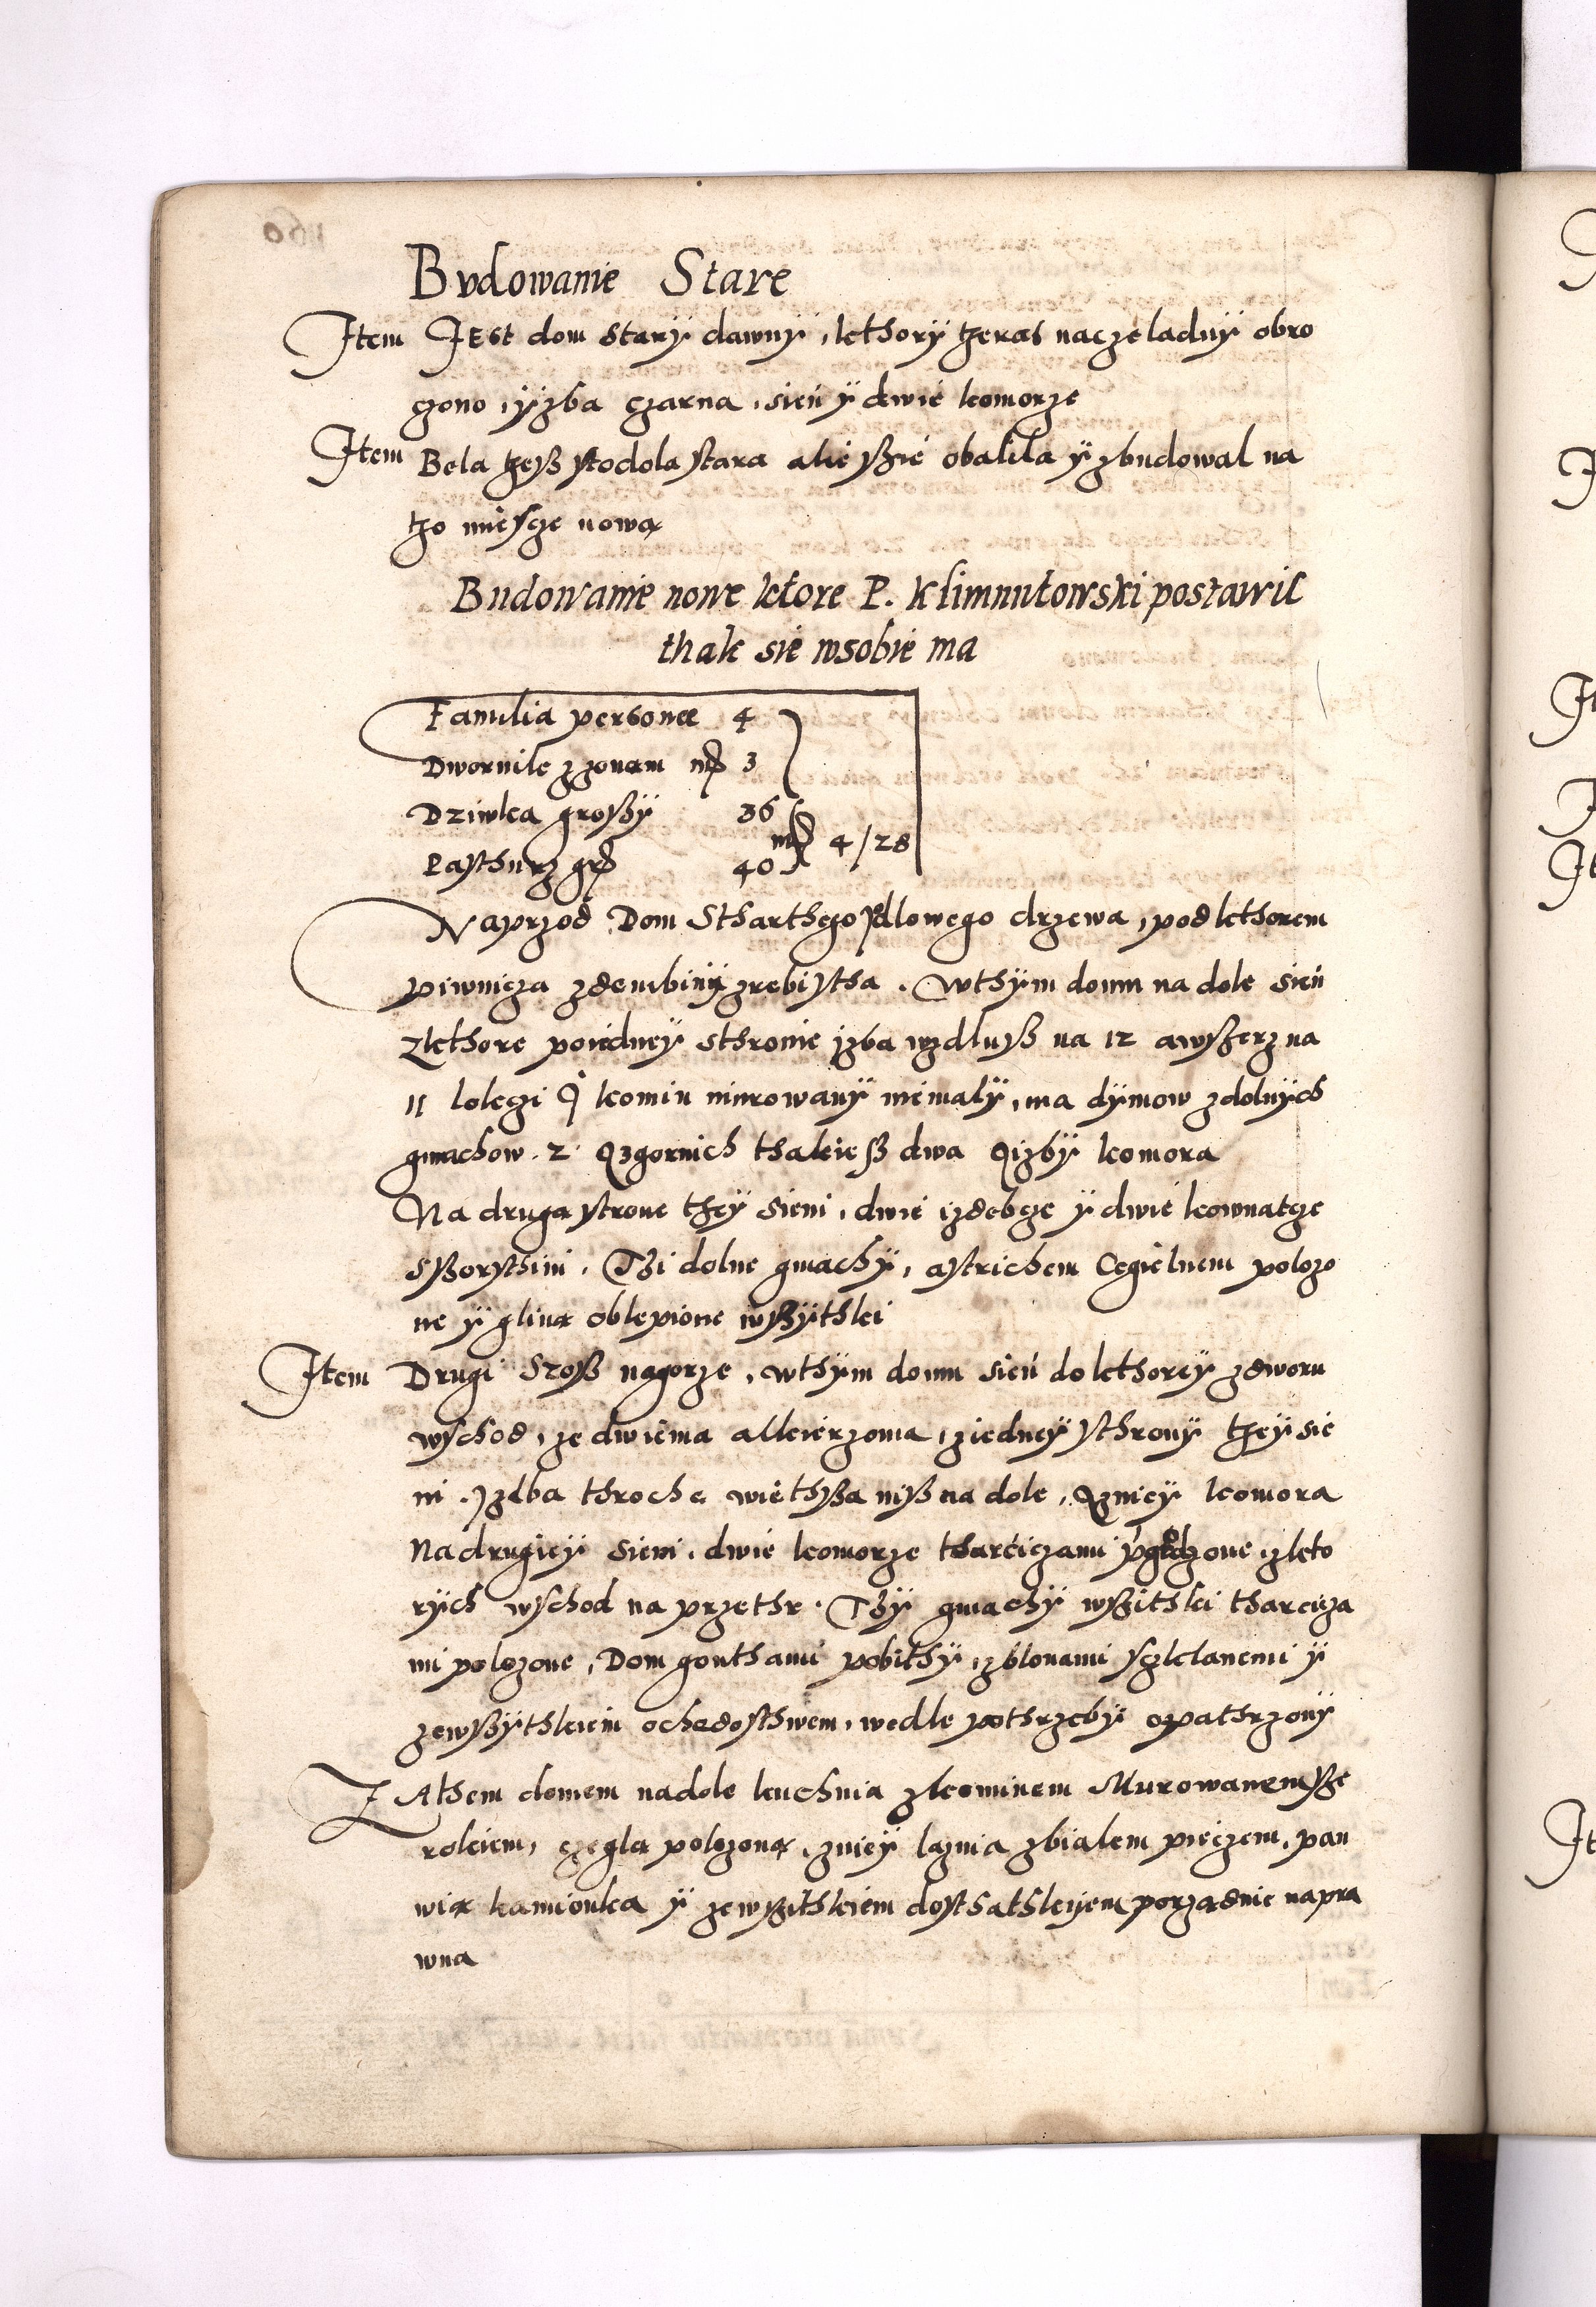 Bvdowanie Stare
Item JEst dom Starÿ dawnÿ, kthorÿ tzeras naczeladnÿ obro
czono, ÿzba czarna, sień ÿ dwie komorze
Item Bela tzeyß stodola stara alie ÿßię obalila ÿ zbudowal na
tzo miejscze nowa
Budowanie nowe ktore P. Klimnutowski postawil
thak sie wsobie ma
Familia personae 4
Dwornik z zonam 3
Dziwka großÿ 36
4/28
Pasthurz 40
Naprzod Dom Stharthego Jedlowego drzewa, pod kthorem
piwnicza zdembinÿ zrebistha. Wthÿm domu na dole sień
Zkthore poiednej sthronie jzba wzdluß na 12 awßerz na
11 lokczi komin murowanÿ niemalÿ, ma dÿmow zdolnÿch
gmachow. 2 zgornich thakieß dwa izbÿ komora
Na druga strone thzeÿ sieni, dwie izdebcze ÿ dwie kownatcze
Thi dolne gmachÿ, astrichem Cegielnem polozo
ne ÿ glina oblepione wßÿthki
Item Drugi Szoß nagorze, wthÿm domu sień do kthoreÿ zdworu
wschod, ze dwiema alkierzoma, ziedneÿ sthronÿ tzeÿ sie
ni. Jzdba troche wiethßa niß na dole, znieÿ komora
Nadrugieÿ sieni, dwie komorze tharcziczami zkto
rÿch wschod na przethr. Thÿ gmachÿ wßithki tharcicza
mi polozone, Dom gonthami pobithÿ, zblonami sczklanemi ÿ
zewßÿthkiem ochedosthwem, wedle pothrzebÿ opathrzonÿ
ZAthem domem nadole kuchnia zkominem Murowanem ße
rokiem, czegla polozona, znieÿ laznia zbialem pieczem, pan
wia kamionka ÿ zewßithkiem dosthathkijem porzadnie napra
wna